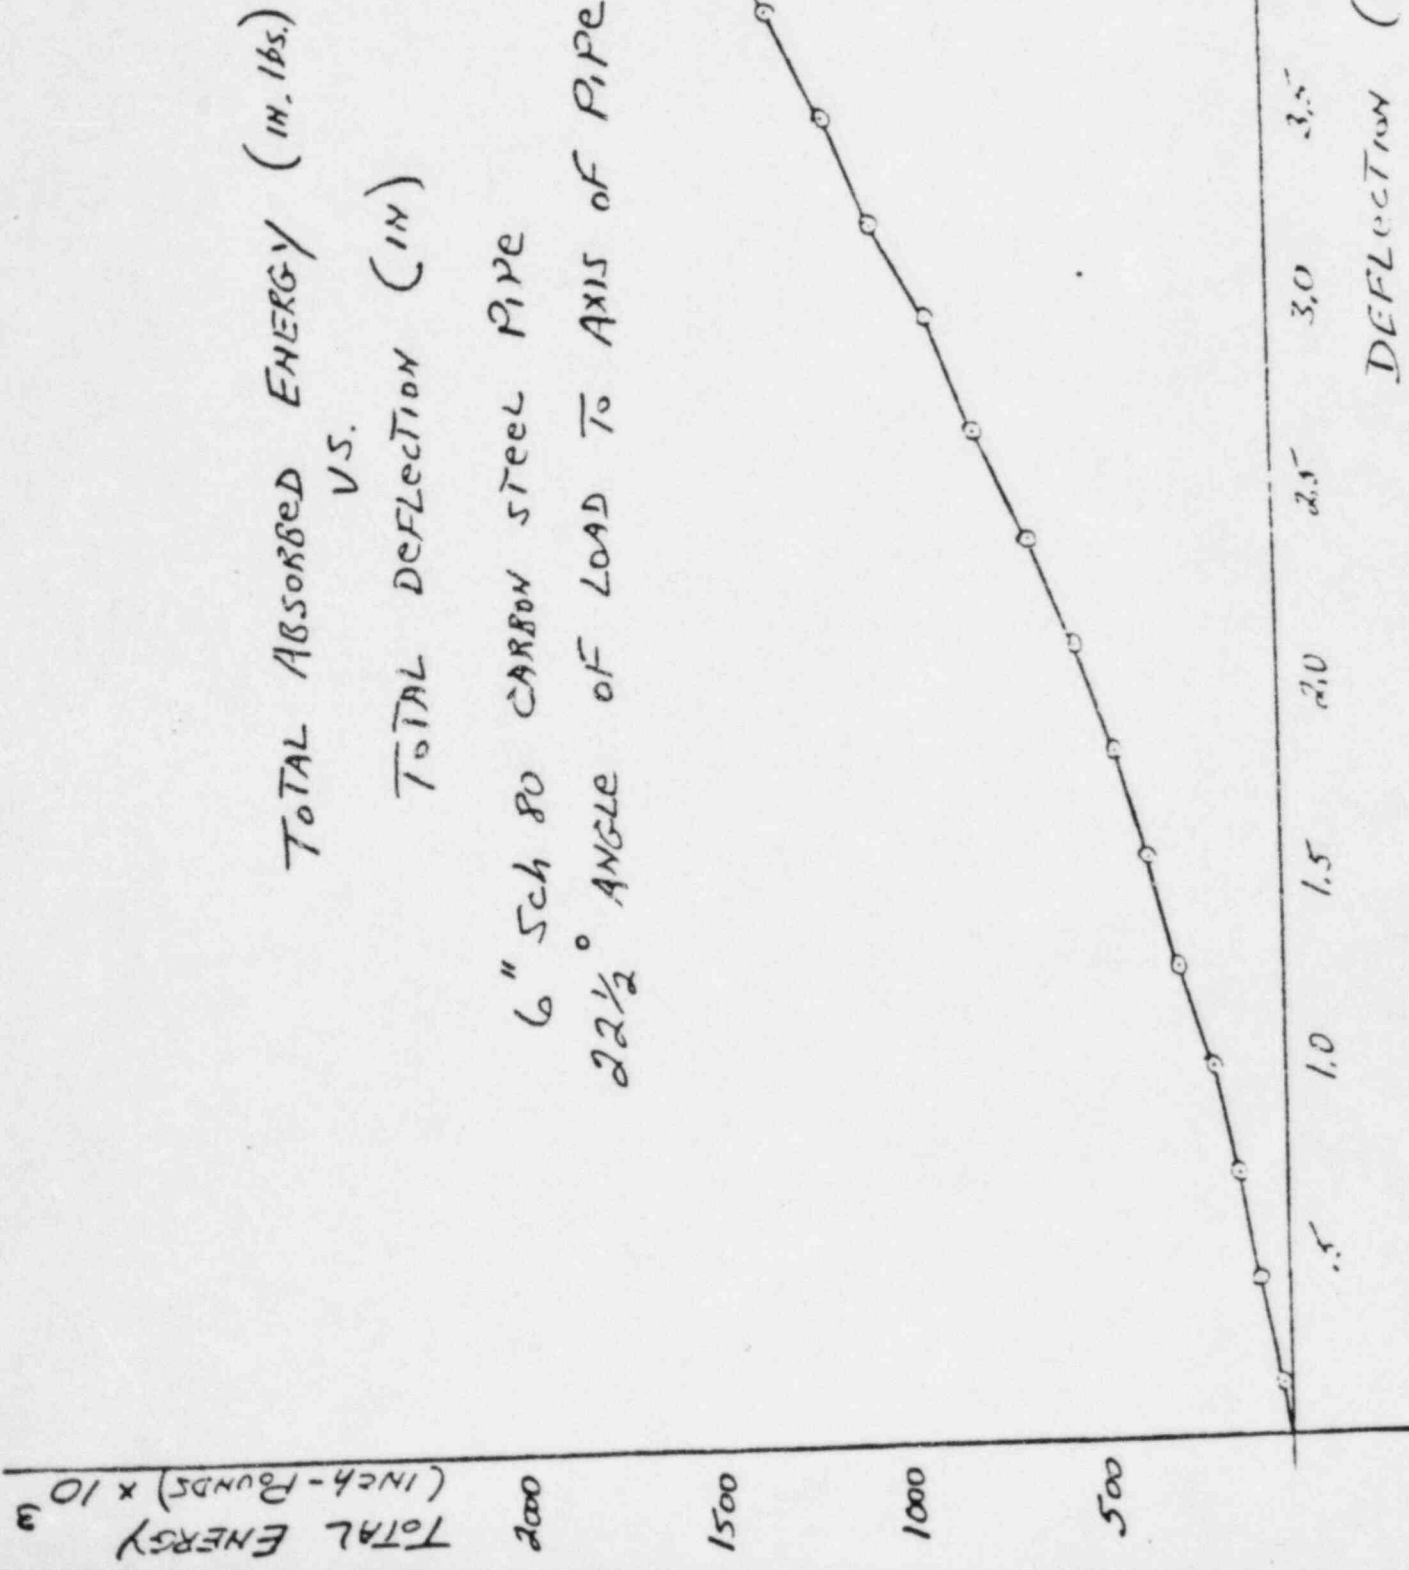 TOTAL ABSORBED ENERGY (IN. lbs.)
VS.
TOTAL DEFLECTION (IN)
6" Sch 80 CARBON STEEL PIPE
22½° ANGLE OF LOAD TO AXIS OF PIPE
TOTAL ENERGY
(INCH-POUNDS) × 10³
2000
1500
1000
500
.5
1.0
1.5
2.0
2.5
3.0
3.5
DEFLECTION (